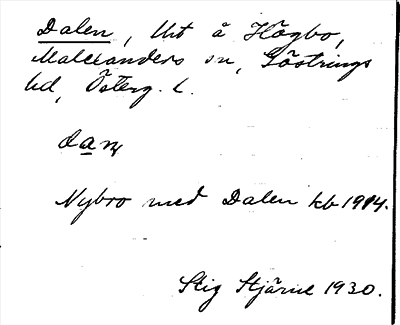 Dalen, Ut å Högbo,
Malexanders sn, Göstrings
hd, Österg. l.
dan
Nybro med Dalen kb 1914.
Stig Stjärne 1930.